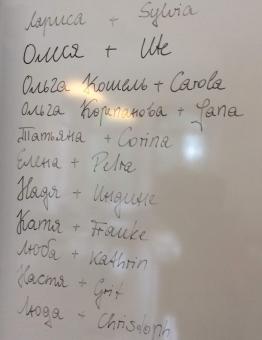 Лариса + Sylvia
Олеся + Ute
Ольга Кошель + Carola
Ольга Корпанова + Jana
Татьяна + Corina
Елена + Petra
Надя + Ундине
Катя + Frauke
Люба + Kathrin
Настя + Grit
Люда + Christoph